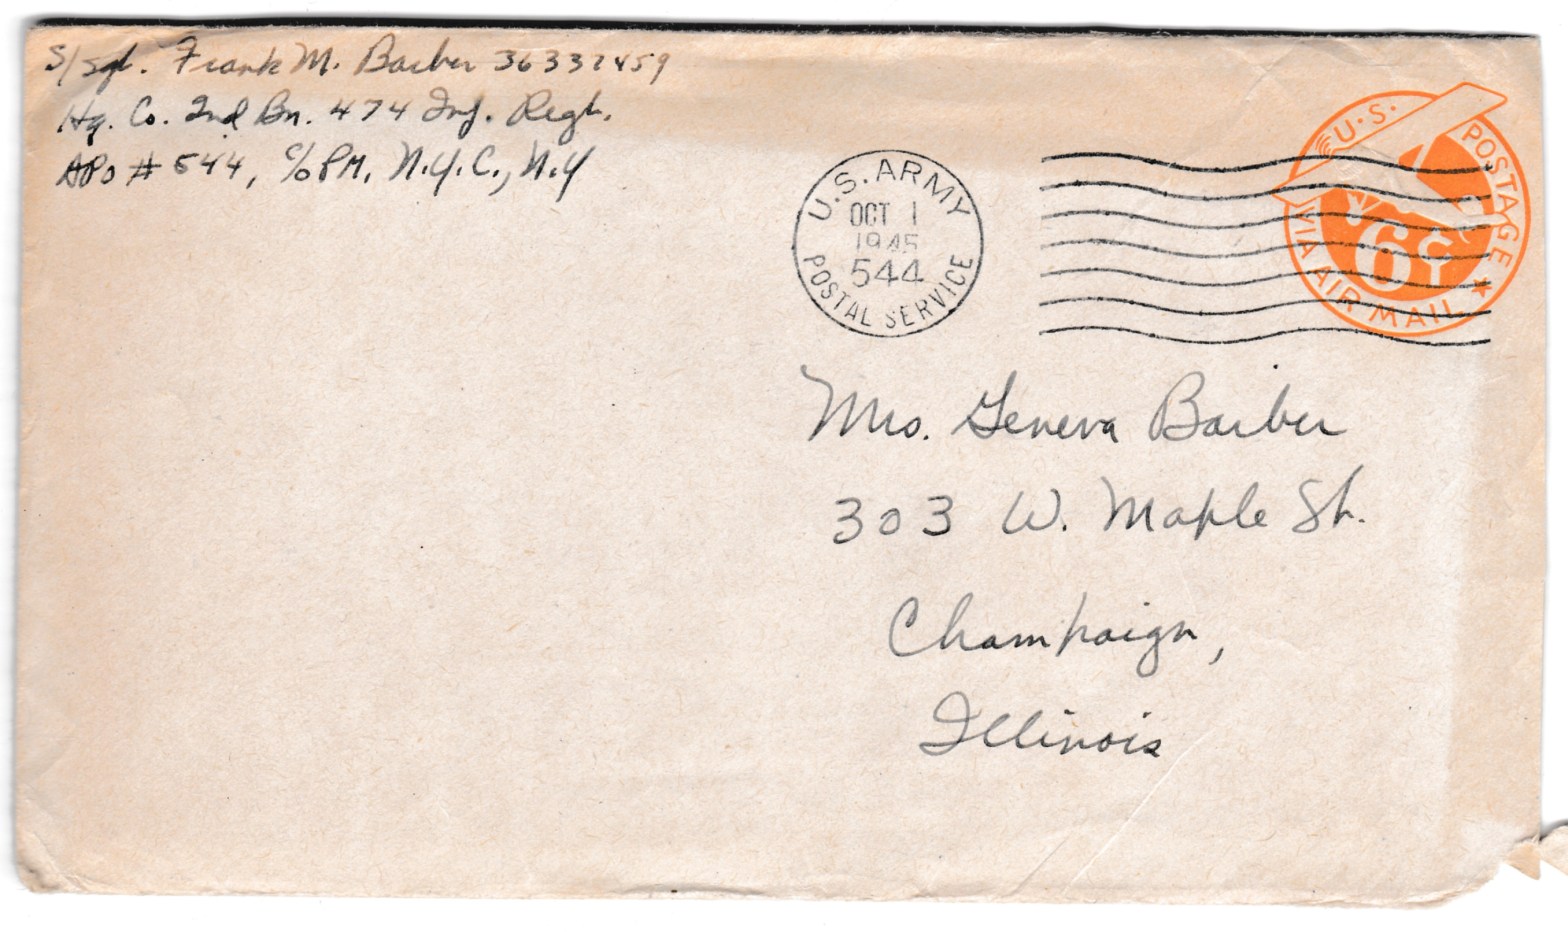 S/Sgt. Frank M. Barber 36337459
Hq. Co. 2nd Bn. 474 Inf. Regt.
APO # 544, c/o PM, N.Y.C., N.Y
U.S. ARMY
OCT 1
1945
544
POSTAL SERVICE
U.S. POSTAGE
6¢
VIA AIR MAIL
Mrs. Geneva Barber
303 W. Maple St.
Champaign,
Illinois